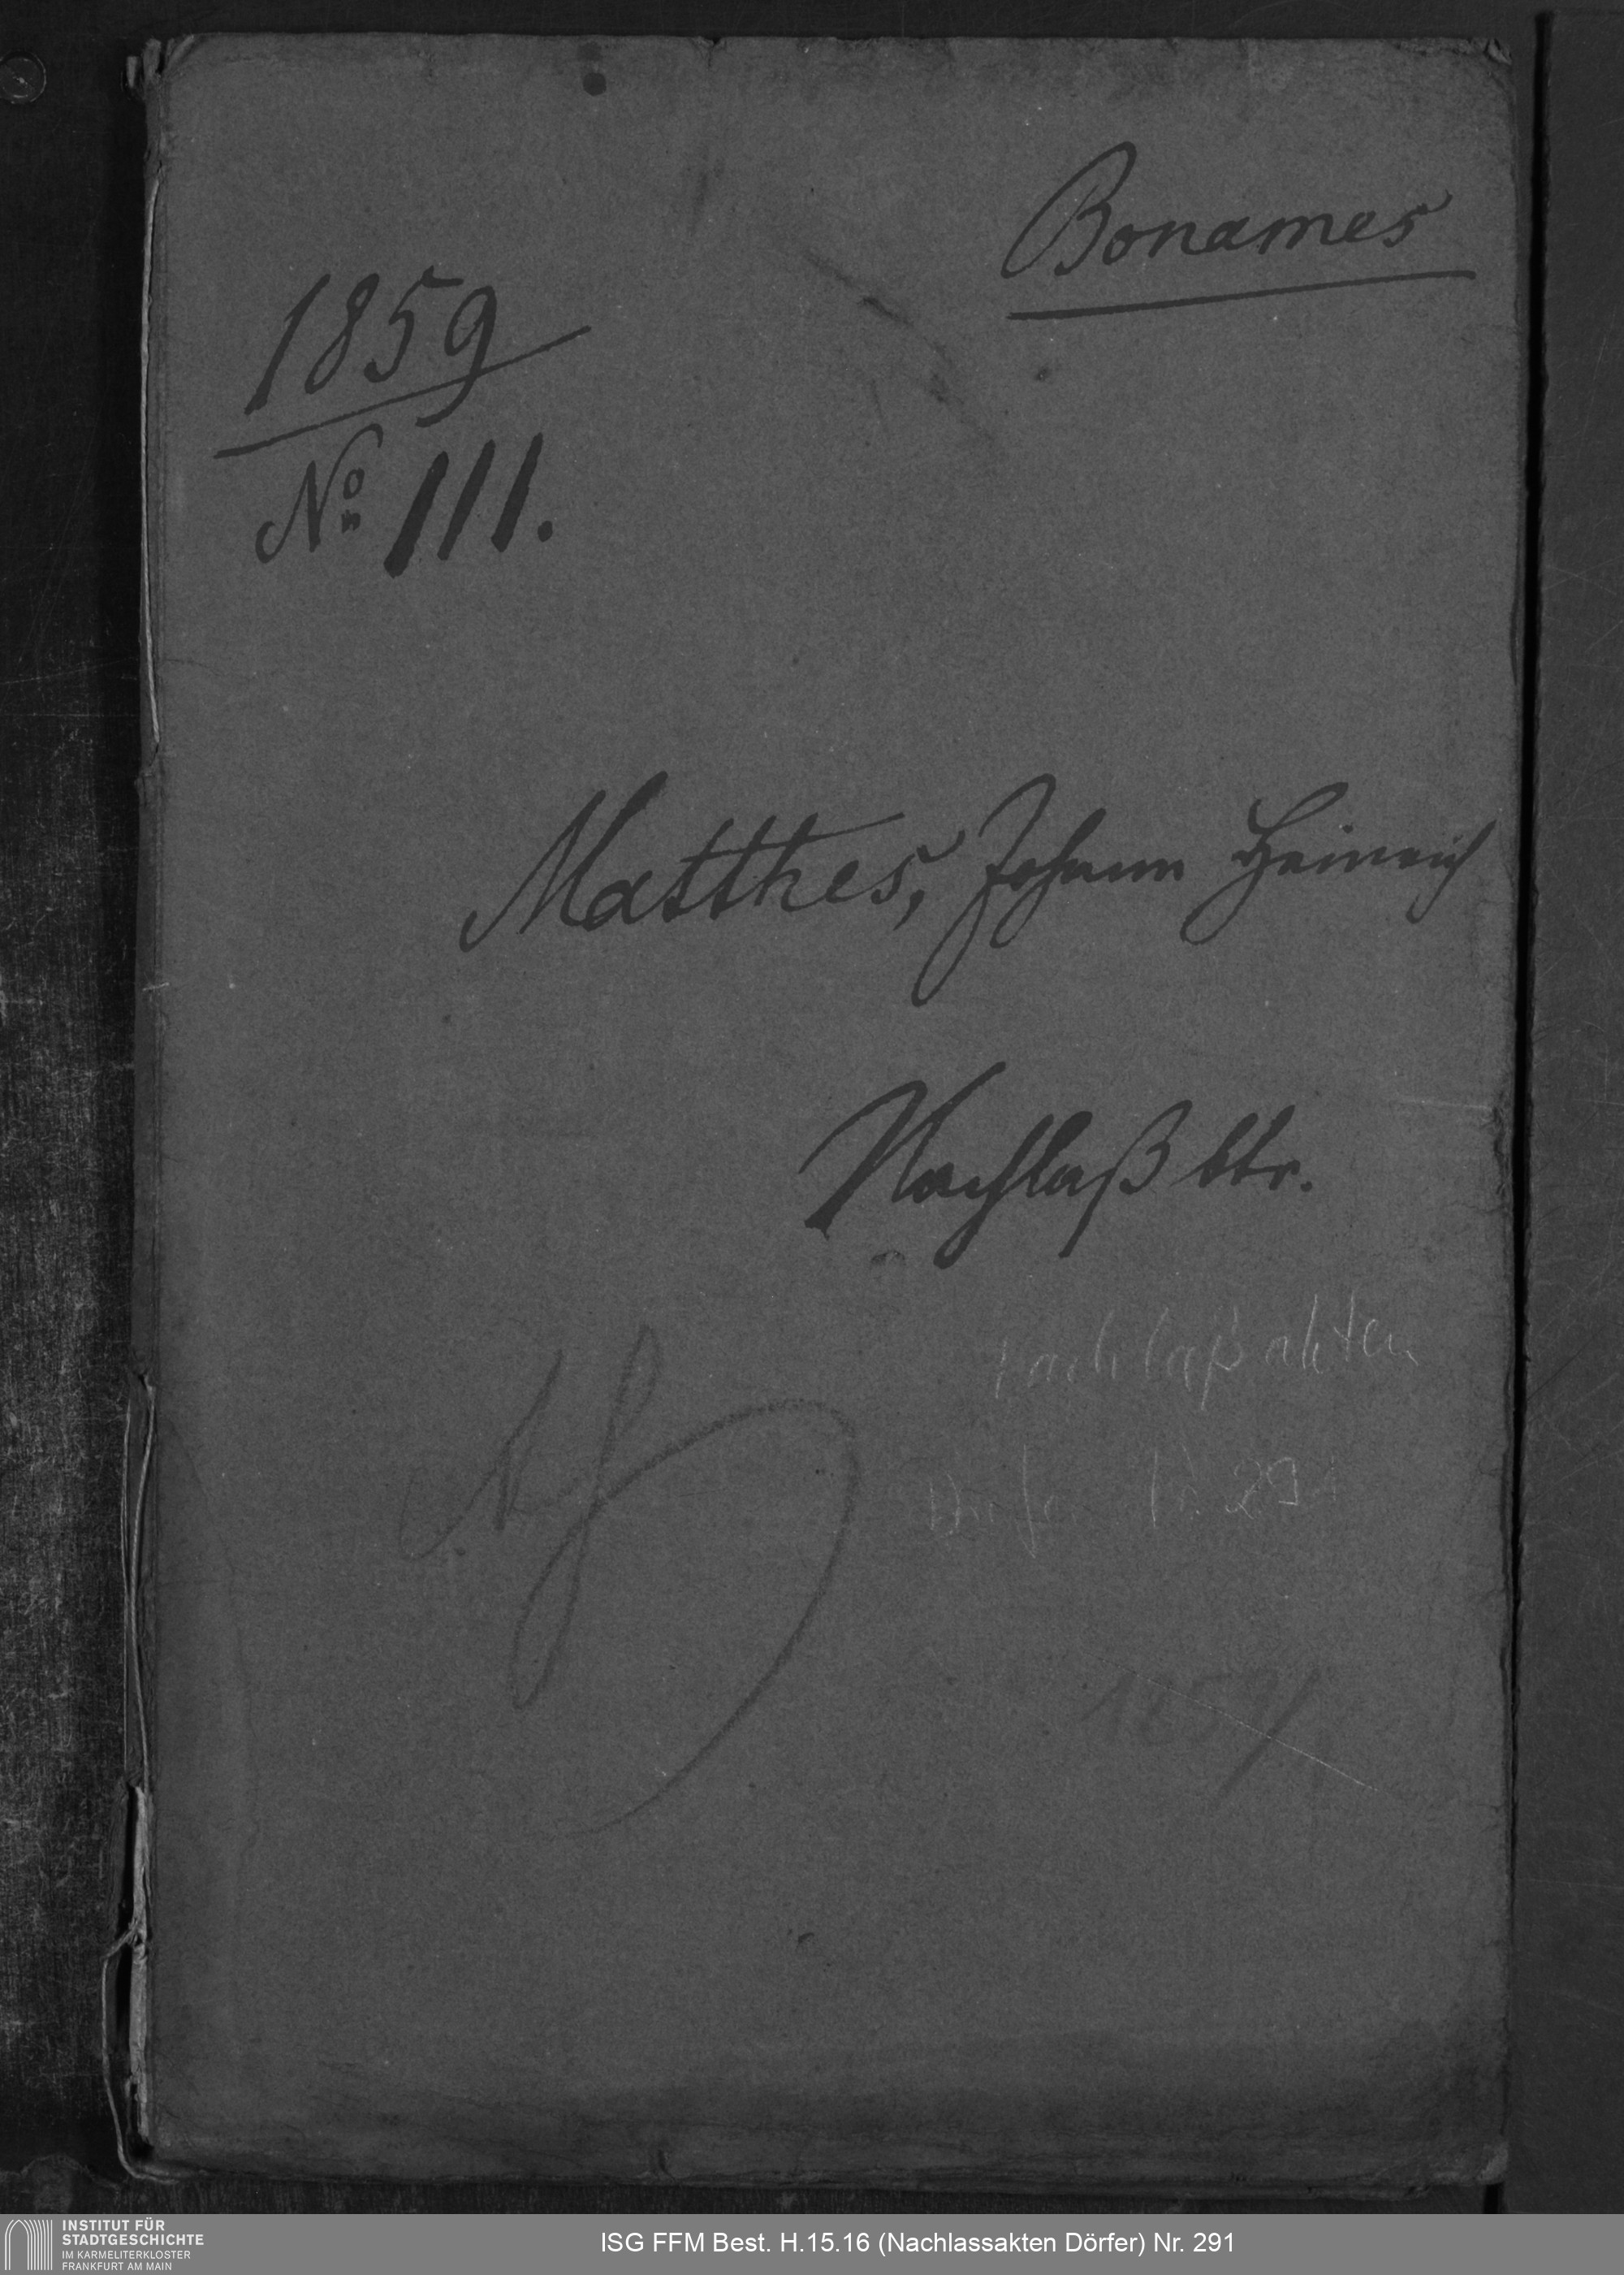 Bonames
1859
No 111.
Matthes, Johann Heinrich
Nachlaß btr.
Nachlaßakten
Dörfer Nr. 291
1859/
INSTITUT FÜR
STADTGESCHICHTE
IM KARMELITERKLOSTER
FRANKFURT AM MAIN
ISG FFM Best. H.15.16 (Nachlassakten Dörfer) Nr. 291